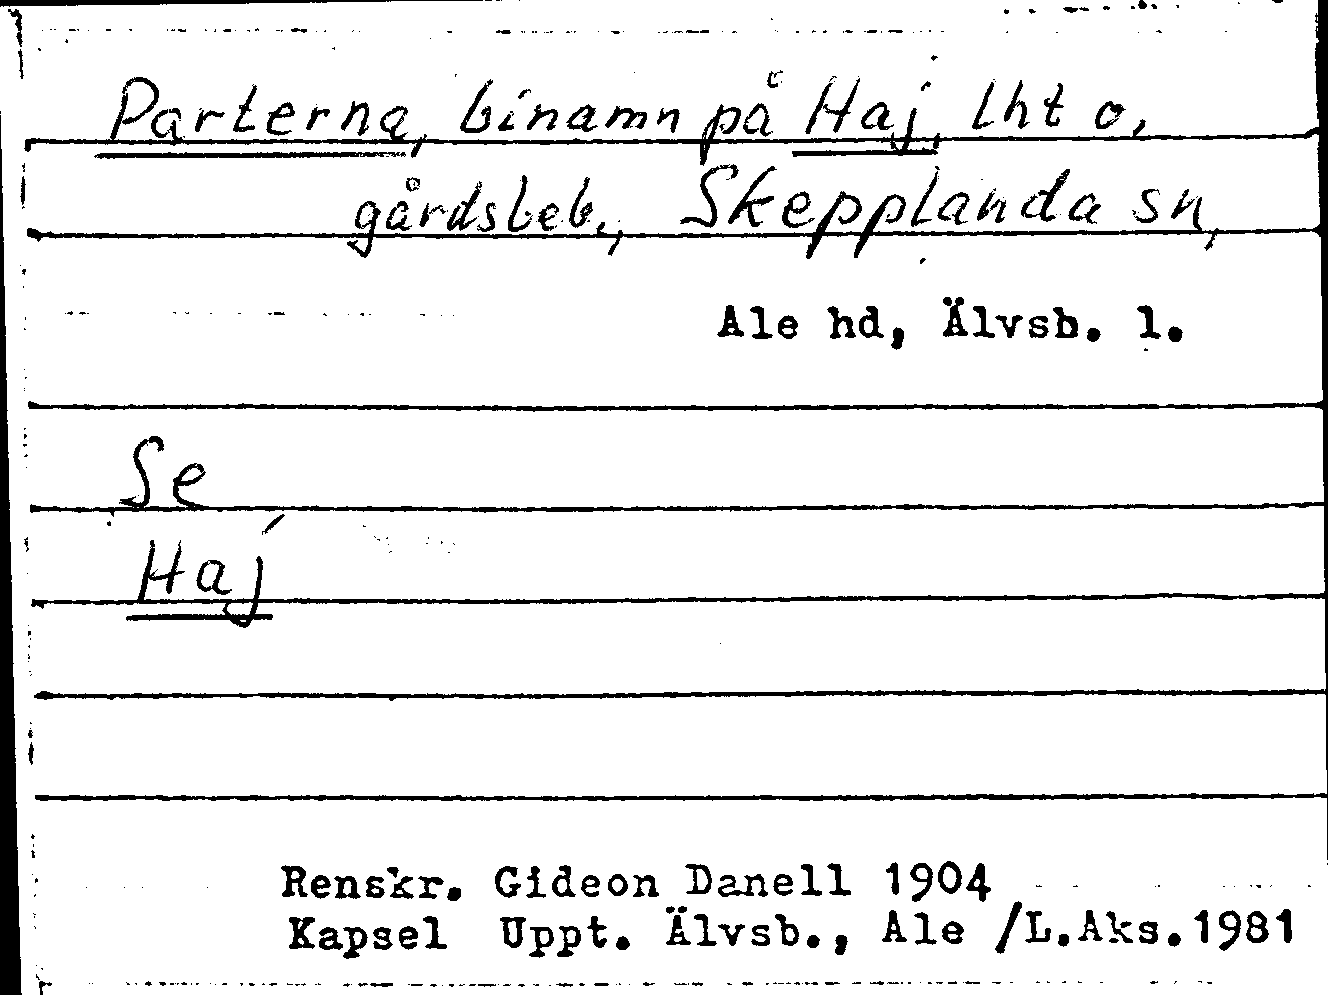 Parterna, binamn på Haj, lht o,
gårdsbeb., Skepplanda sn,
Ale hd, Älvsb. l.
Se
Haj
Renskr. Gideon Danell 1904
Kapsel Uppt. Älvsb., Ale /L.Aks.1981